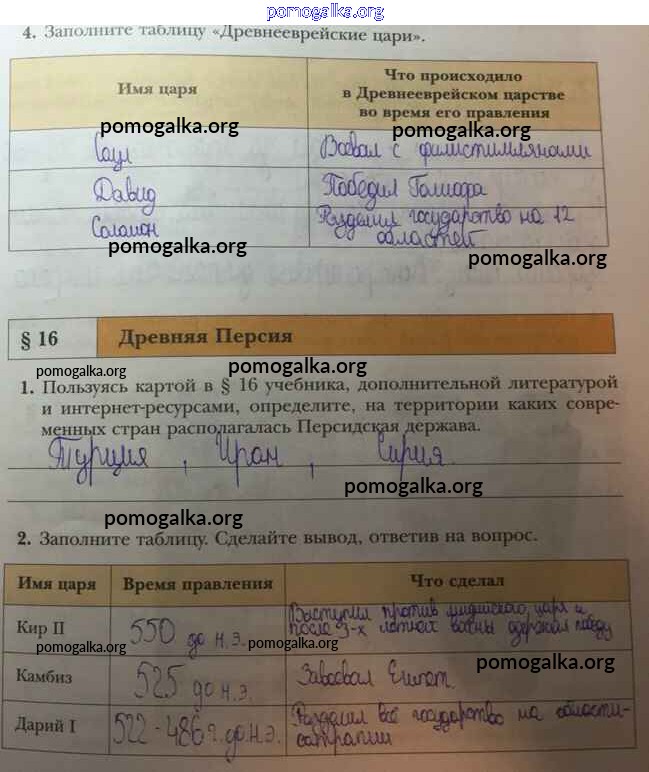 pomogalka.org
4. Заполните таблицу «Древнееврейские цари».
Имя царя
Что происходило
в Древнееврейском царстве
во время его правления
pomogalka.org
pomogalka.org
Саул
Воевал с филистимлянами
Давид
Победил Голиафа
Соломон
Разделил государство на 12
областей
pomogalka.org
pomogalka.org
§ 16
Древняя Персия
pomogalka.org
pomogalka.org
1. Пользуясь картой в § 16 учебника, дополнительной литературой
и интернет-ресурсами, определите, на территории каких совре-
менных стран располагалась Персидская держава.
Турция, Иран, Сирия.
pomogalka.org
pomogalka.org
2. Заполните таблицу. Сделайте вывод, ответив на вопрос.
Имя царя
Время правления
Что сделал
Кир II
550 до н.э.
Выступил против мидийского царя и
после 3-х летней войны одержал победу
pomogalka.org
pomogalka.org
pomogalka.org
Камбиз
525 до н.э.
Завоевал Египет.
Дарий I
522-486 г. до н.э.
Разделил всё государство на области-
сатрапии